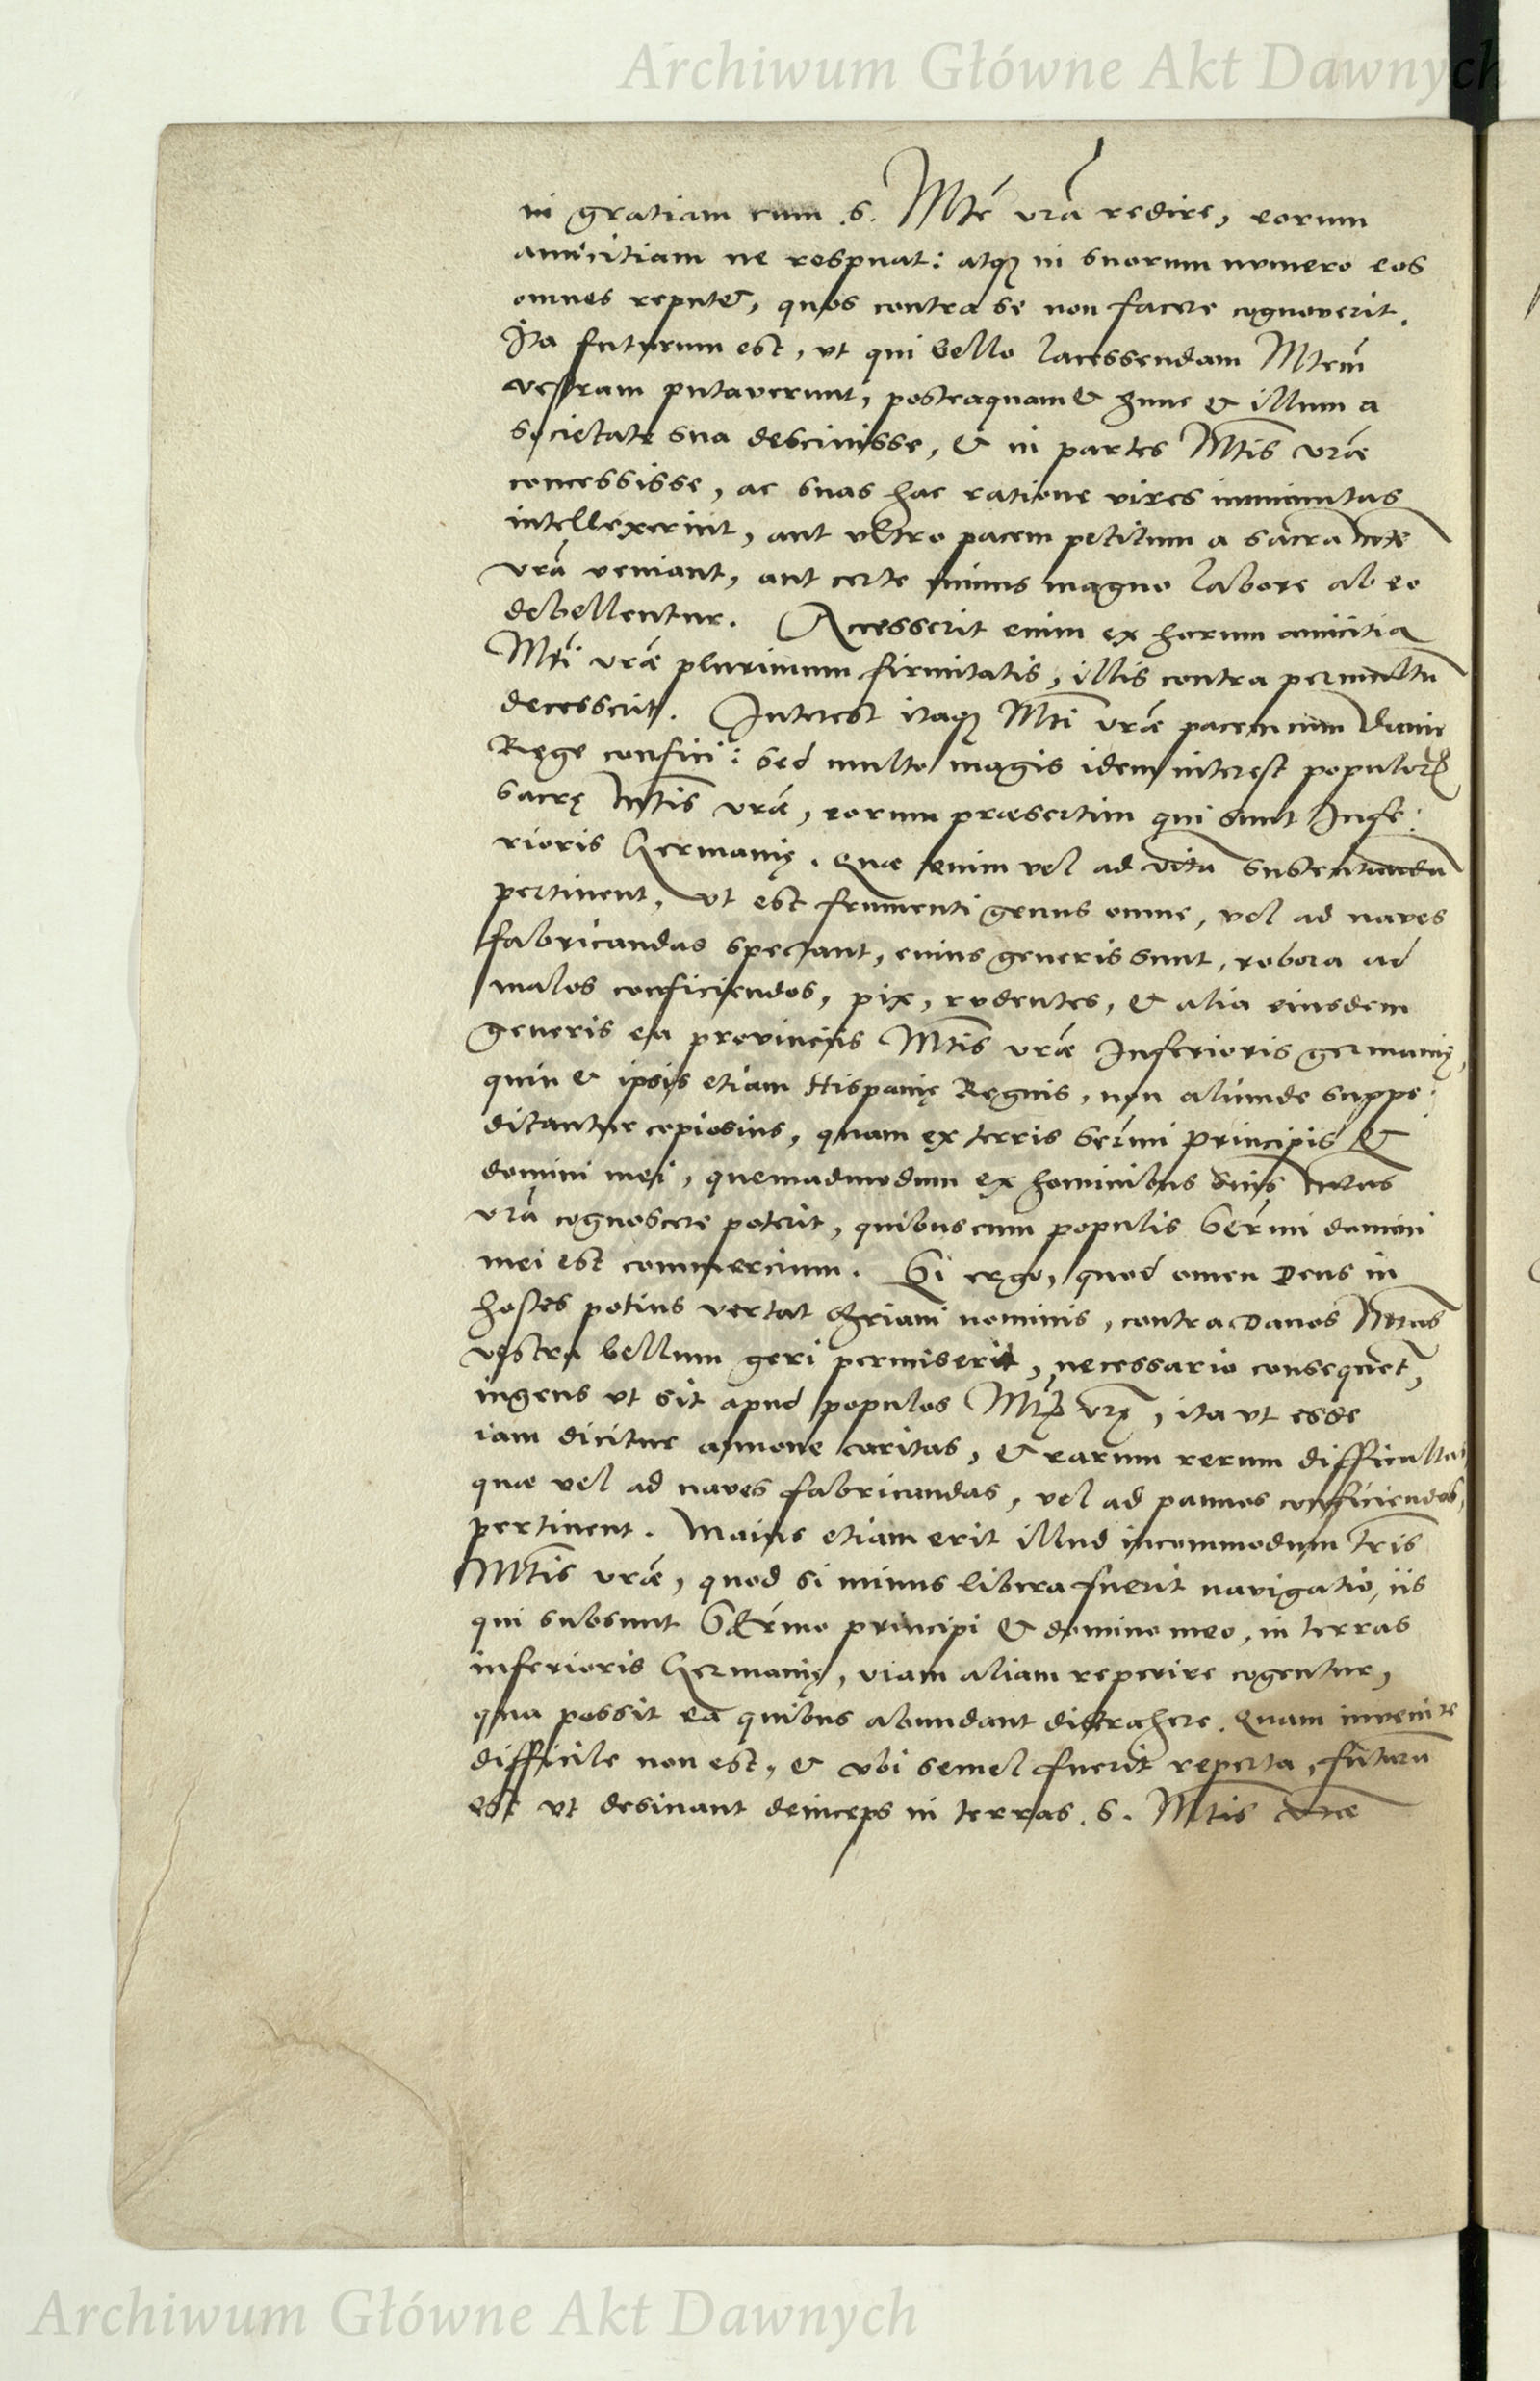 Archiwum Główne Akt Dawnych
in gratiam cum .S. Mte vrã redire, eorum
amicitiam ne respuat: atq; in suorum numero eos
omnes reputet, quos contra se non facere cognoverit.
Ita futurum est, ut qui bello lacessendam Mtem
vestram putaverunt, posteaquam & hunc & illum a
societate sua descivisse, & in partes Mtis vræ
concessisse, ac suas hac ratione vires imminutas
intellexerint, aut ultro pacem petitum a sacra Mte
vrã veniant, aut certe minus magno labore ab eo
debellentur. Accesserit enim ex horum amicitia
Mti vræ plurimum firmitatis, illis contra permultũ
decesserit. Interest itaq; Mti vræ pacem cum Daniæ
Rege confici: sed multo magis idem interest populorũ
Sacrę Mtis vræ, eorum præsertim qui sunt Infe:
rioris Germanię. Quæ enim vel ad vitã sustentandã
pertinent, ut est frumenti genus omne, vel ad naves
fabricandas spectant, cuius generis sunt, robora ad
malos conficiendos, pix, rudentes, & alia eiusdem
generis ea provinciis Mtis vræ Inferioris germanię,
quin & ipsis etiam Hispanię Regnis, non aliunde suppe:
ditantur copiosius, quam ex terris Sermi Principis &
domini mei, quemadmodum ex hominibus suis Mtas
vrã cognoscere poterit, quibus cum populis Sermi domini
mei est commercium. Si ergo, quod omen Deus in
hostes potius vertat Chriani nominis, contra Danos Mtas
vestra bellum geri permiserit, necessario consequet,
ingens ut sit apud populos Mtis vrę, ita ut esse
iam dicitur annonę caritas, & earum rerum difficultas
quæ vel ad naves fabricandas, vel ad pannos conficiendos,
pertinent. Maius etiam erit illud incommodum tris
Mtis vræ, quod si minus libera fuerit navigatio, iis
qui subsunt Sermo principi & domino meo, in terras
inferioris Germanię, viam aliam reperire cogentur,
qua possit ea quibus abundant distrahere. Quam invenire
difficile non est, & ubi semel fuerit reperta, futurũ
est ut desinant deinceps in terras .S. Mtis vræ
Archiwum Główne Akt Dawnych